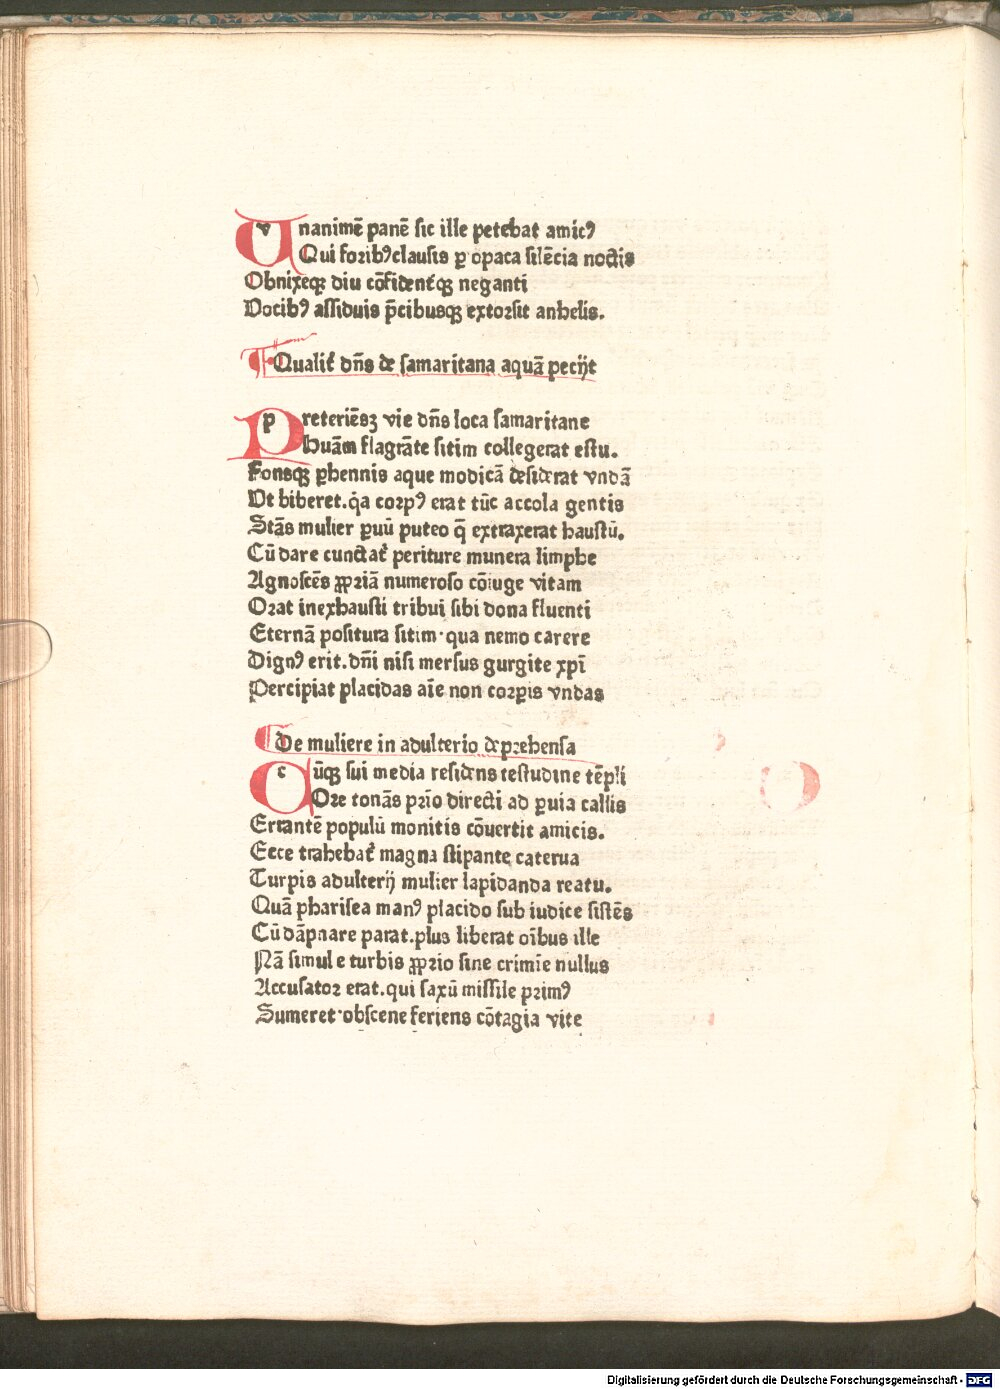 Vnanimē panē sic ille petebat amicꝰ
Qui foribꝰ clausis ꝑ opaca silēcia noctis
Obnixeqꝫ diu cōfident̃qꝫ neganti
Vocibꝰ assiduis p̄cibusqꝫ extorsit anhelis.
Qualit̃ dn̄s de samaritana aquā pecijt
Preteriēsꝫ vie dn̄s loca samaritane
Huām flagrāte sitim collegerat estu.
Fonsqꝫ ꝑhennis aque modicā desiderat vndā
Vt biberet. q̇a corpꝰ erat tūc accola gentis
Stās mulier ꝑuū puteo q̄ extraxerat haustū.
Cū dare cunctat̃ periture munera limphe
Agnoscēs ꝓpriā numeroso cōiuge vitam
Orat inexhausti tribui sibi dona fluenti
Eternā positura sitim· qua nemo carere
Dignꝰ erit. dn̄i nisi mersus gurgite xp̄i
Percipiat placidas aīe non corꝑis vndas
De muliere in adulterio deprehensa
Cūqꝫ sui media residens testudine tēpli
Ore tonās prīo directi ad ꝑuia callis
Errantē populū monitis cōuertit amicis.
Ecce trahebat̃ magna stipante caterua
Turpis adulterij mulier lapidanda reatu.
Quā pharisea manꝰ placido sub iudice sistēs
Cū dāpnare parat. plus liberat oībus ille
Nā simul e turbis ꝓprio sine crimīe nullus
Accusator erat. qui saxū missile primꝰ
Sumeret· obscene feriens cōtagia vite
Digitalisierung gefördert durch die Deutsche Forschungsgemeinschaft - DFG